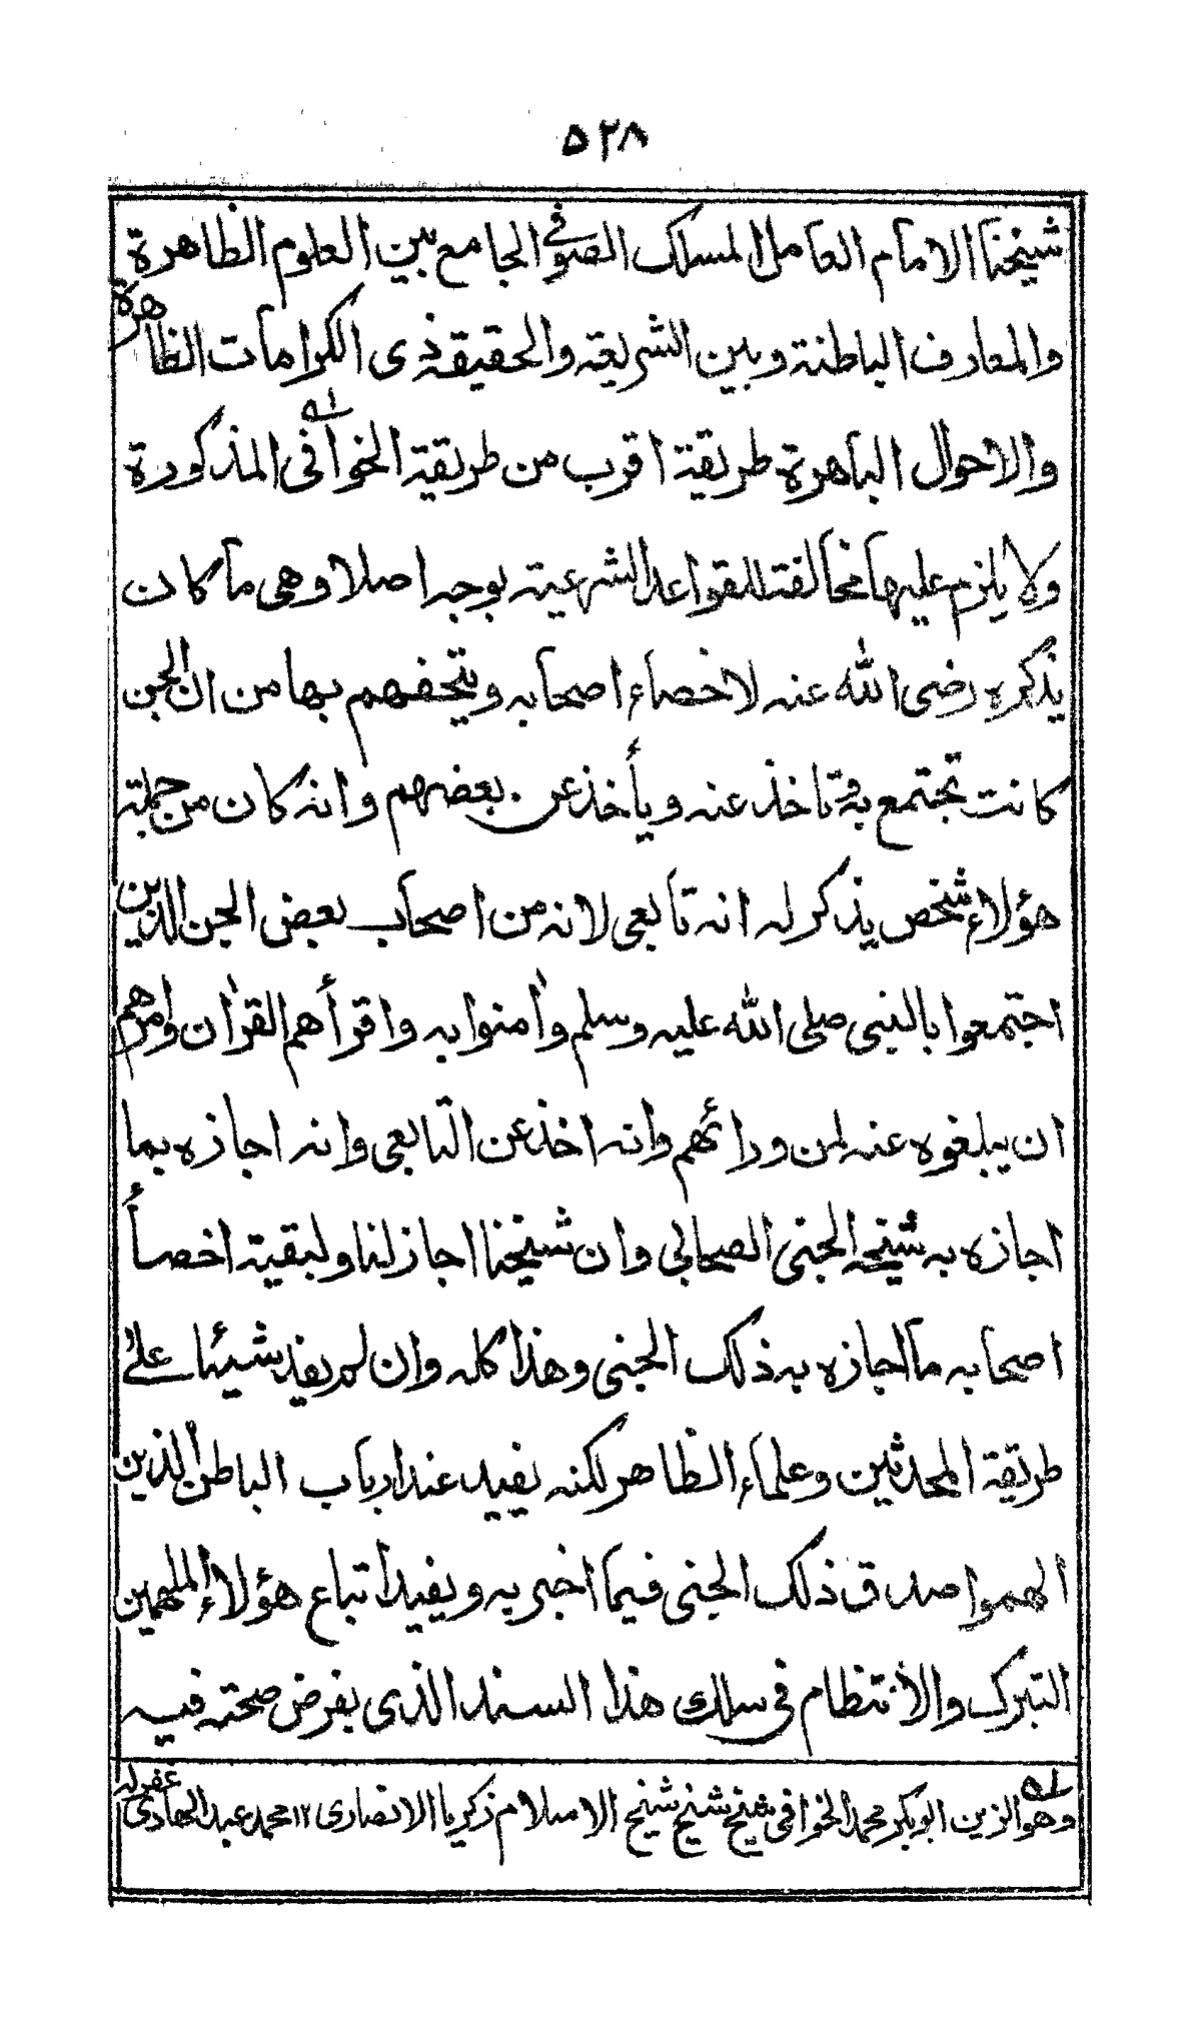 ٥٢٨
شيخنا الامام العامل المسلك الصوفى الجامع بين العلوم الظاهرة
والمعارف الباطنة وبين الشريعة والحقيقة ذى الكرامات الظاهرة
والاحوال الباهرة طريقة اقرب من طريقة الخوافى المذكورة
ولا يلزم عليها مخالفة للقواعد الشرعية بوجه اصلا وهى ما كان
يذكره رضى الله عنه لاخصاء اصحابه ويتحفهم بها من ان الجن
كانت تجتمع به وتاخذ عنه ويأخذ عن بعضهم وانه كان من جملة
هؤلاء شخص يذكر له انه تابعى لانه من اصحاب بعض الجن الذين
اجتمعوا بالنبى صلى الله عليه وسلم واٰمنوا به واقرأهم القراٰن وامرهم
ان يبلغوه عنه لمن ورائهم وانه اخذ عن التابعى وانه اجازه بما
اجازه به شيخه الجنى الصحابى وان شيخنا اجاز لنا ولبقية اخصأ
اصحابه ما اجازه به ذلك الجنى وهذا كله وان لم يفد شيئا على
طريقة المحدثين وعلماء الظاهر لكنه يفيد عند ارباب الباطن الذين
الهموا صدق ذلك الجنى فيما اخبر به ويفيد اتباع هؤلاء الملهمين
التبرك والأنتظام فى سلك هذا السند الذى بفرض صحته فيه
وهو الزين ابو بكر محمد الخوافى شيخ شيخ شيخ الاسلام زكريا الانصارى ١٢ محمد عبد الهادى غفر له